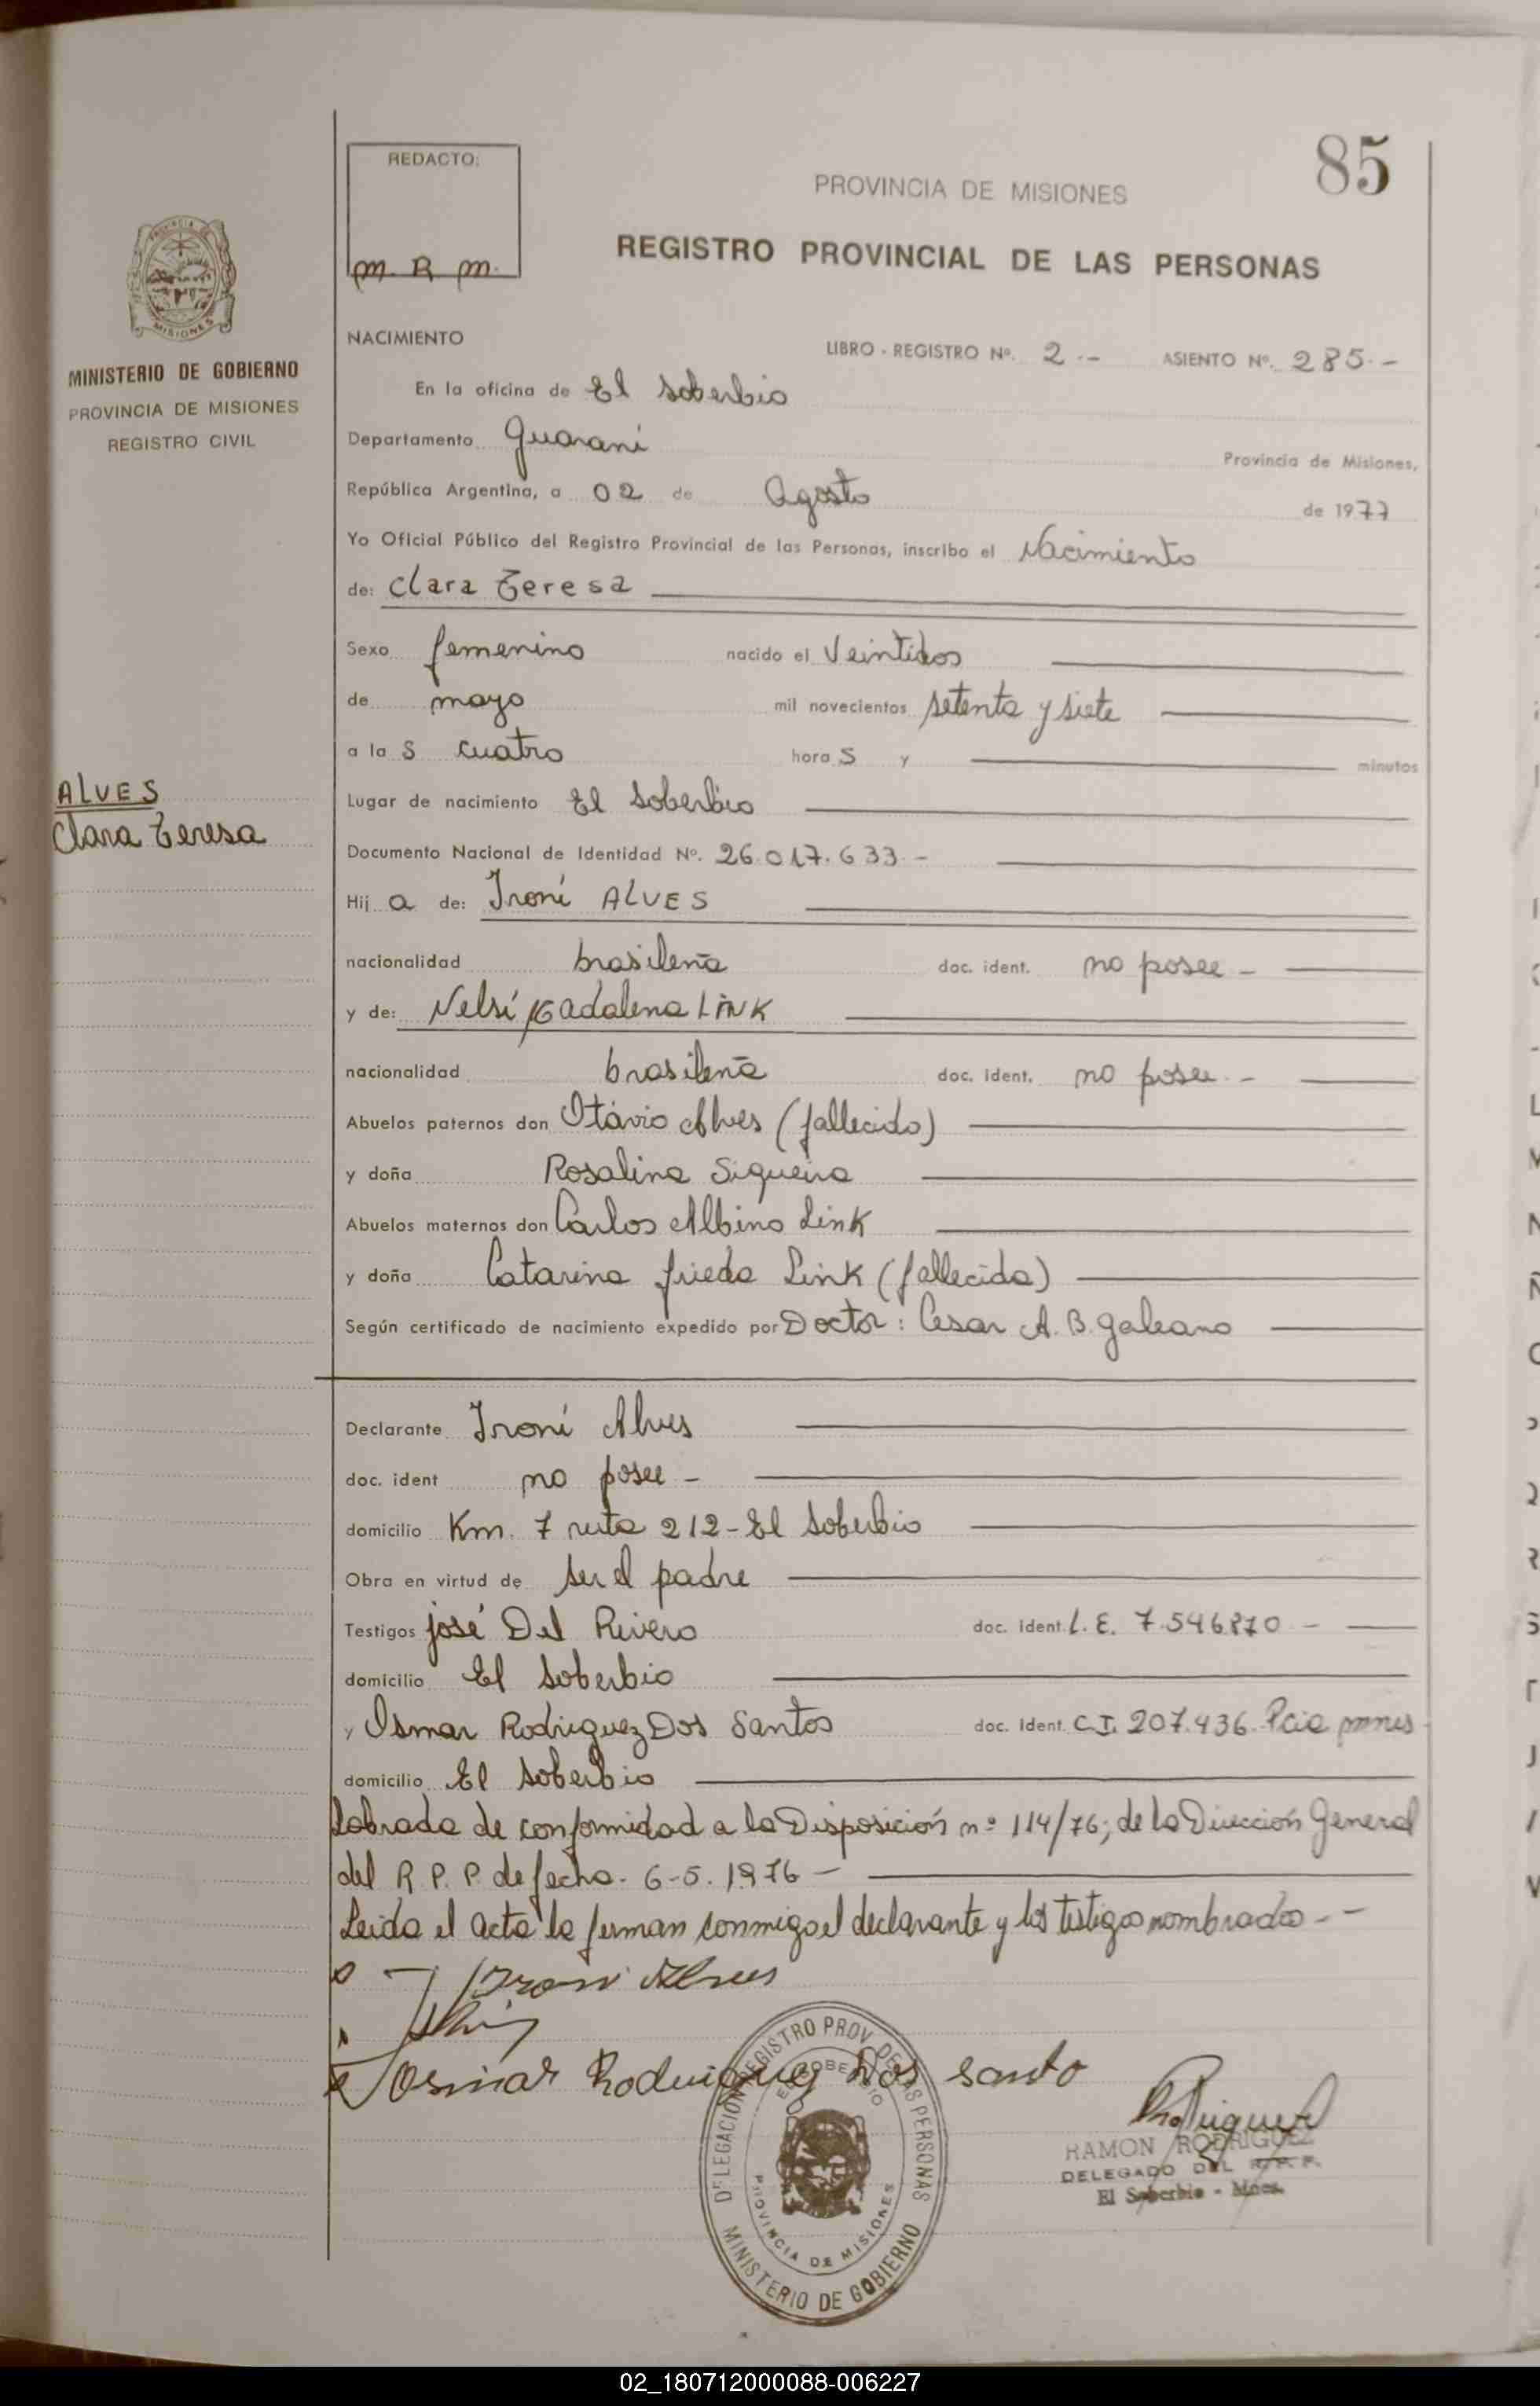 85
REDACTO:
m. R. m.
PROVINCIA DE MISIONES
REGISTRO PROVINCIAL DE LAS PERSONAS
MISIONES
MINISTERIO DE GOBIERNO
PROVINCIA DE MISIONES
REGISTRO CIVIL
NACIMIENTO
LIBRO - REGISTRO Nº. 2.- ASIENTO Nº. 285.-
En la oficina de El Soberbio
Departamento Guaraní
Provincia de Misiones,
República Argentina, a 02 de Agosto de 1977
Yo Oficial Público del Registro Provincial de las Personas, inscribo el Nacimiento
de: Clara Teresa
Sexo femenino nacido el Veintidos
de mayo mil novecientos setenta y siete
a la s cuatro hora s y minutos
ALVES
Clara Teresa
Lugar de nacimiento El Soberbio
Documento Nacional de Identidad Nº. 26.017.633-
Hij a de: Ironí ALVES
nacionalidad brasileña doc. ident. no posee -
y de: Nelsí Madalena LINK
nacionalidad brasileña doc. ident. no posee -
Abuelos paternos don Otávio Alves (fallecido)
y doña Rosalina Siqueira
Abuelos maternos don Carlos Albino Link
y doña Catarina frieda Link (fallecida)
Según certificado de nacimiento expedido por Doctor: Cesar A. B. galeano
Declarante Ironí Alves
doc. ident no posee -
domicilio Km. 7 ruta 212 - El Soberbio
Obra en virtud de ser el padre
Testigos josé Del Rivero doc. ident. L. E. 7.546.870 -
domicilio El Soberbio
y Osmar Rodriguez Dos Santos doc. ident. C.I. 207.436. Pcia mnes
domicilio El Soberbio
Labrada de conformidad a la Disposición nº 114/76; de la Dirección General
del R. P. P. de fecha. 6-5. 1976 -
Leida el acta la firman conmigo el declarante y los testigos nombrados - -
Ironi Alves
Osmar Rodriguez Dos Santo
DELEGACION REGISTRO PROV. DE LAS PERSONAS
EL SOBERBIO
PROVINCIA DE MISIONES
MINISTERIO DE GOBIERNO
RAMON RODRIGUEZ
DELEGADO DEL R. P. P.
El Soberbio - Mnes.
02_180712000088-006227